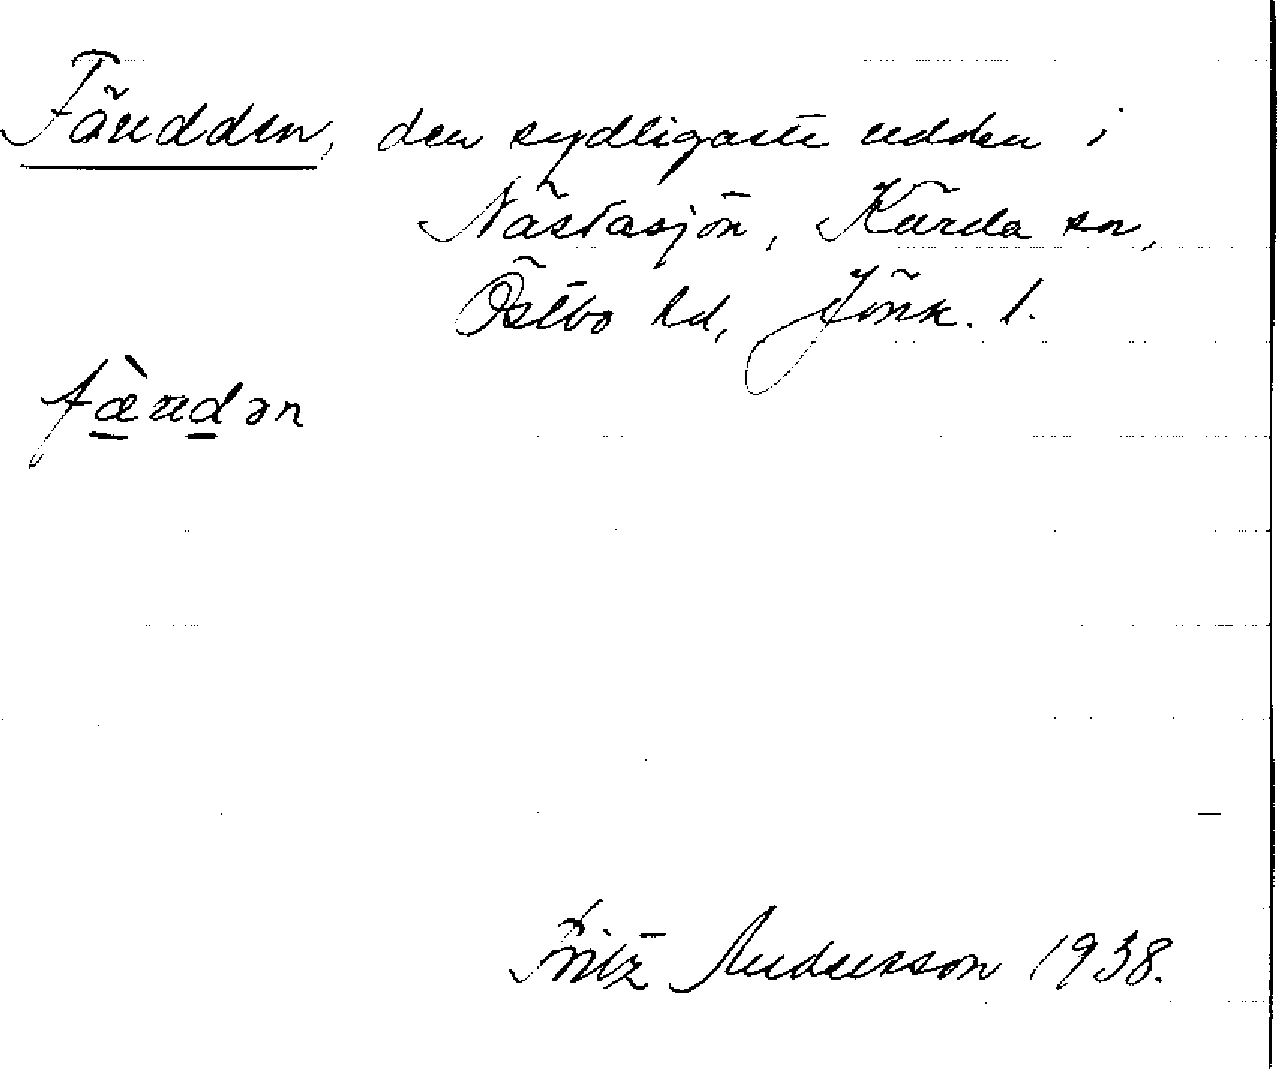 Fäudden, den sydligaste udden i
Nästasjön, Kärda sn,
Östbo hd, Jönk. l.
fæ̀udən
Fritz Andersson 1938.